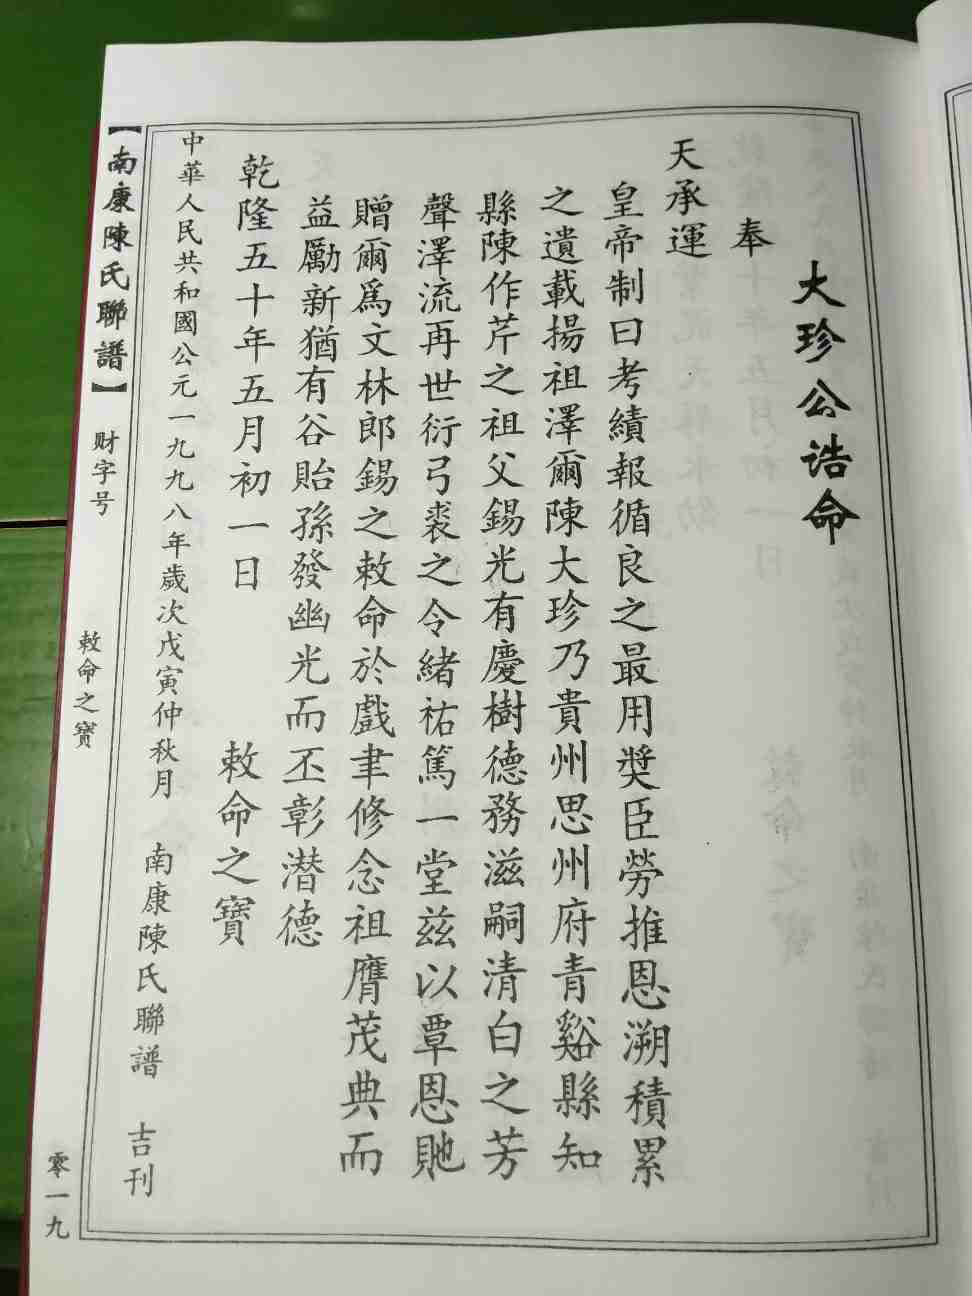 大珍公诰命
奉
天承運
皇帝制曰考績報循良之最用獎臣勞推恩溯積累
之遺載揚祖澤爾陳大珍乃貴州思州府青谿縣知
縣陳作芹之祖父錫光有慶樹德務滋嗣清白之芳
聲澤流再世衍弓裘之令緒祐篤一堂兹以覃恩貤
贈爾爲文林郎錫之敕命於戲聿修念祖膺茂典而
益勵新猶有谷貽孫發幽光而丕彰潛德
乾隆五十年五月初一日 敕命之寶
中華人民共和國公元一九九八年歲次戊寅仲秋月 南康陳氏聯譜 吉刊
【南康陳氏聯譜】 财字号 敕命之寶 零一九